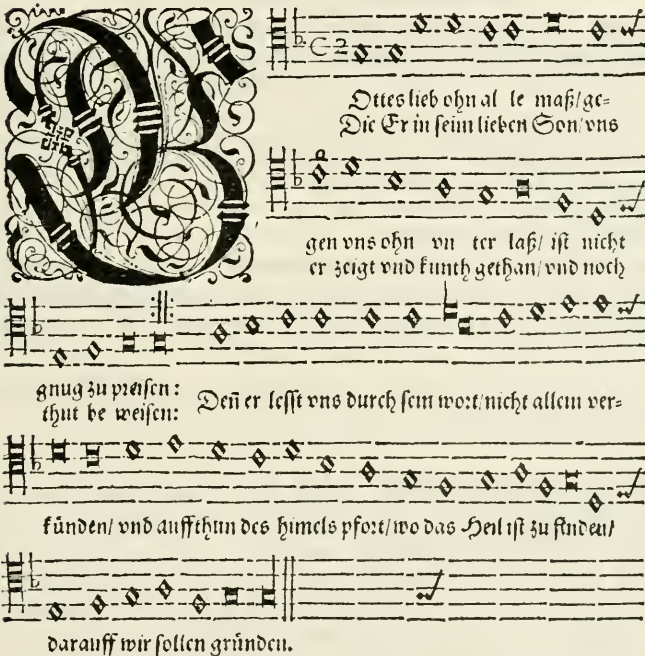 GOttes lieb ohn al le maß/ ge=
Die Er in seim lieben Son/ vns
gen vns ohn vn ter laß/ ist nicht
er zeigt vnd kunth gethan/ vnd noch
gnug zu preisen:
thut be weisen: Deñ er lesst vns durch sein wort/ nicht allein ver=
künden/ vnd auffthun des himels pfort/ wo das Heil ist zu finden/
darauff wir sollen gründen.